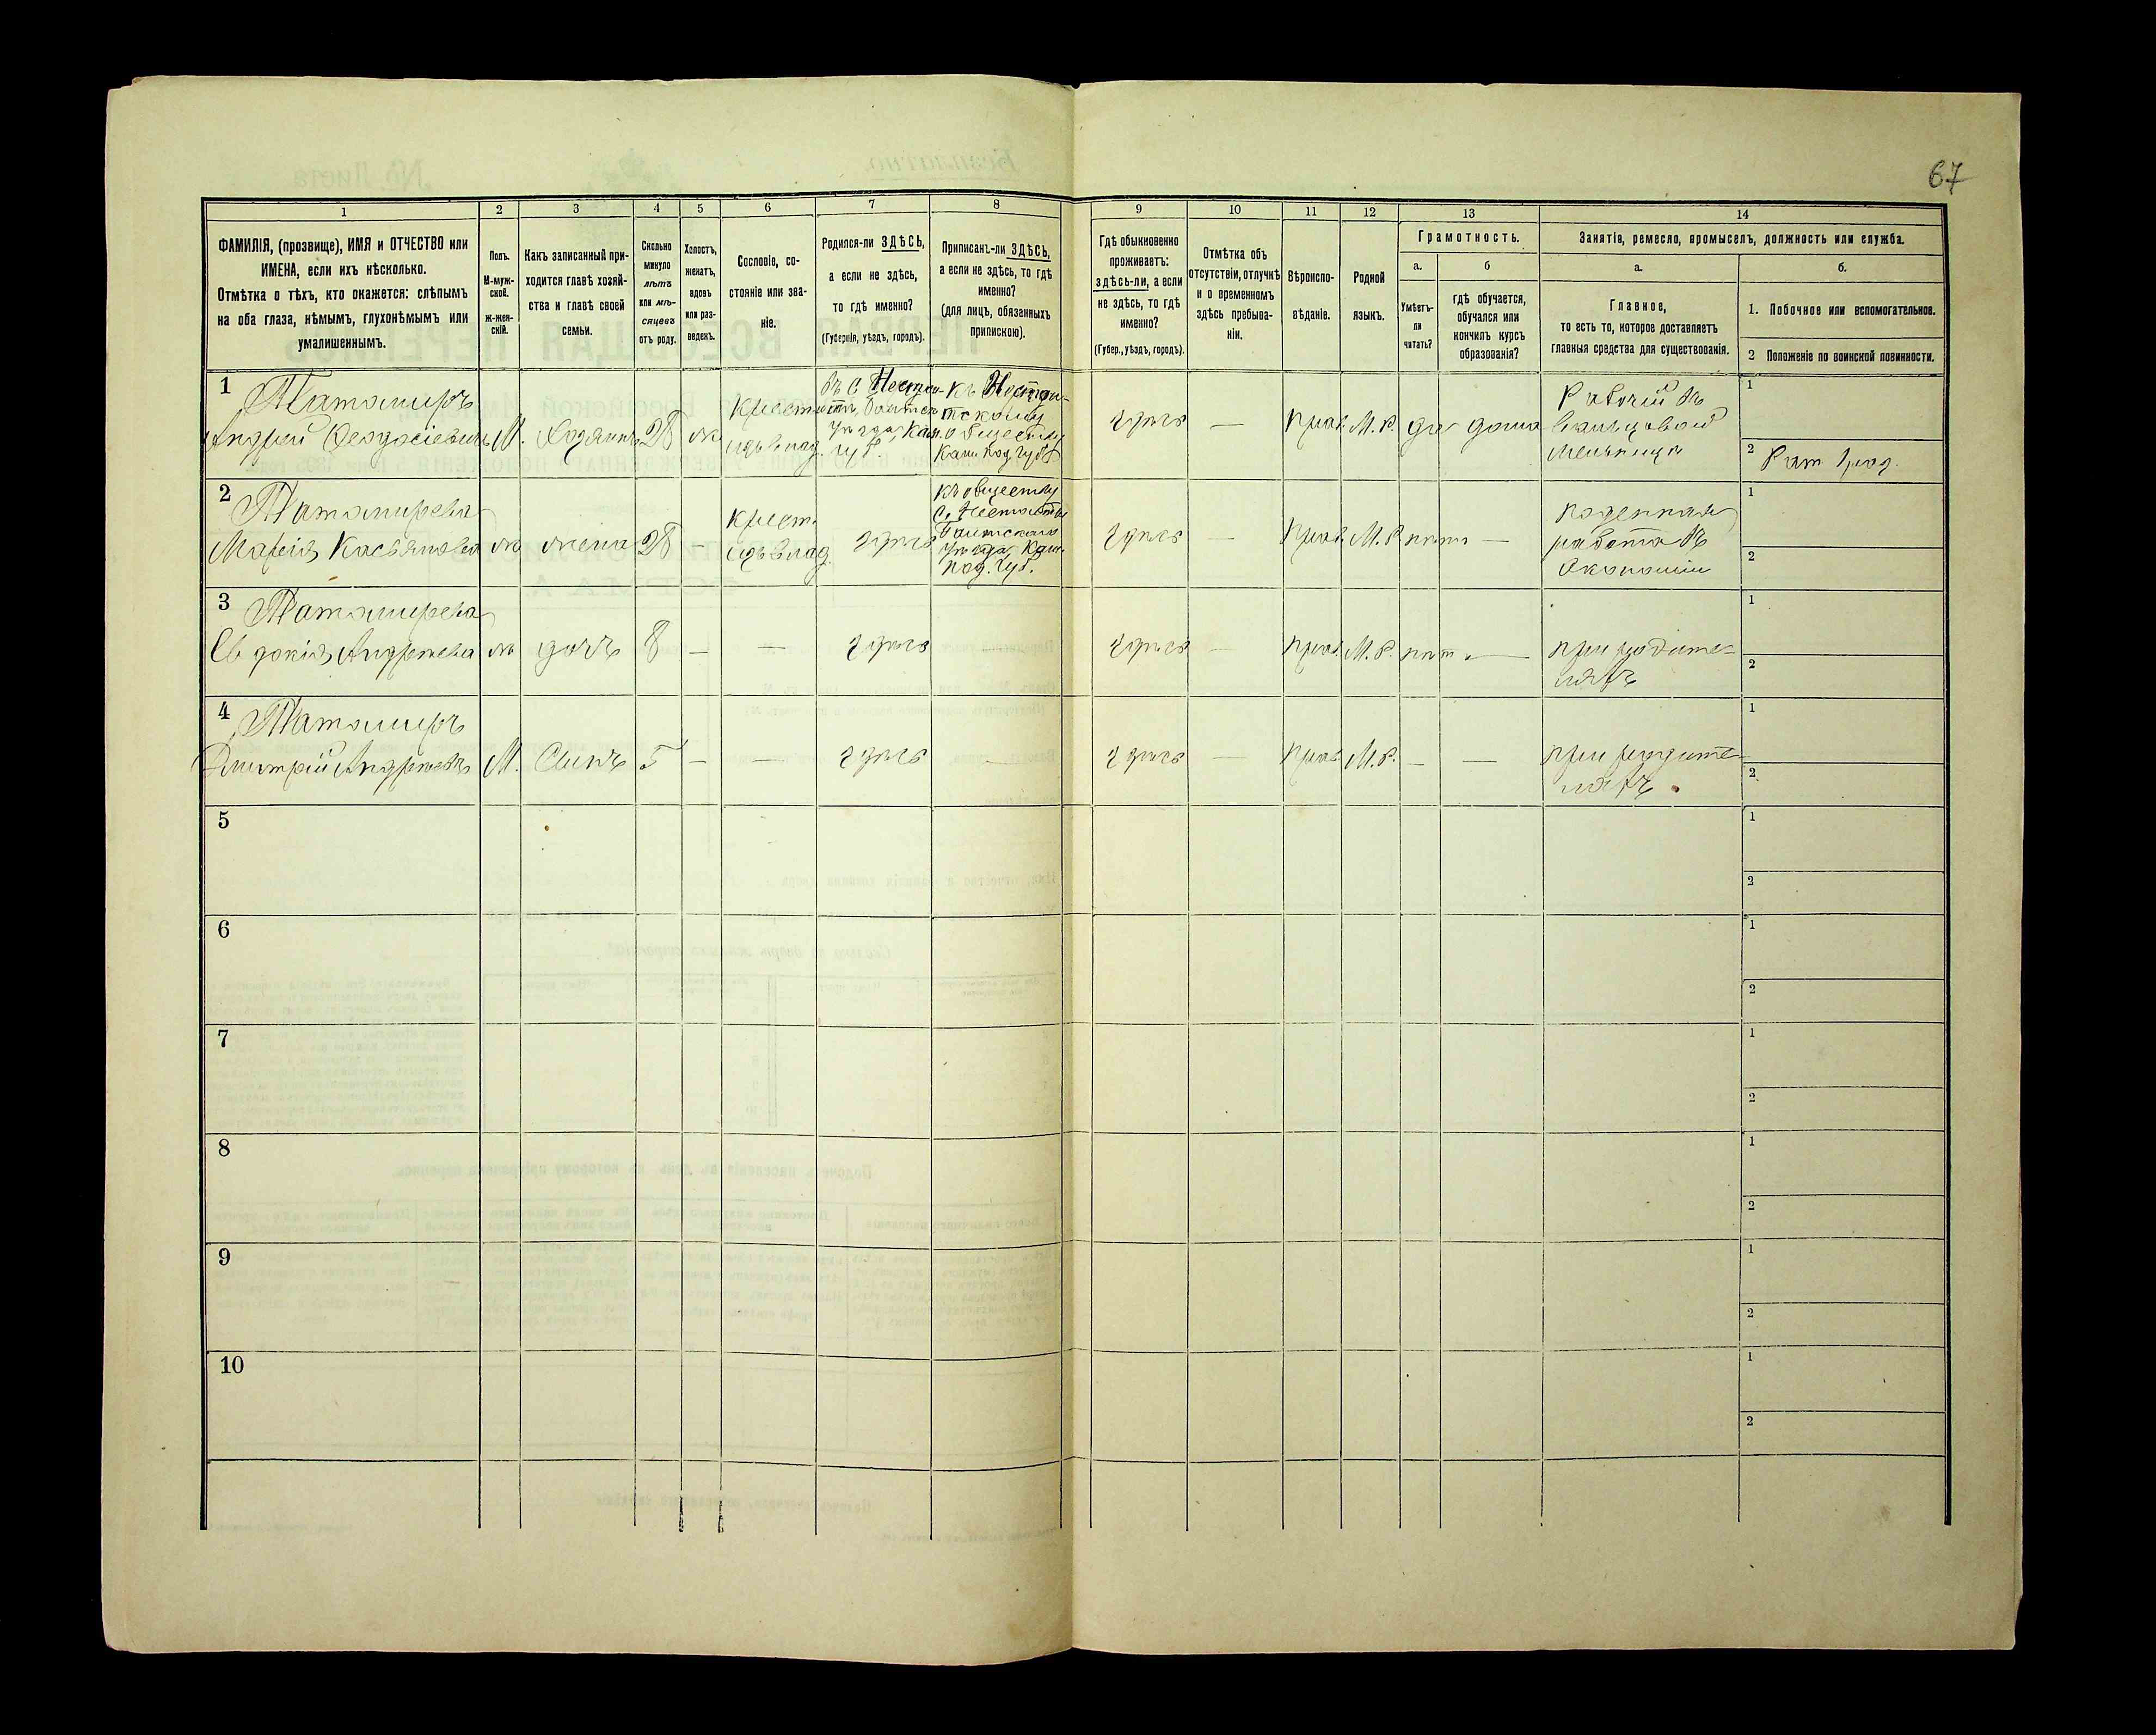 67
1 2 3 4 5 6 7 8 9 10 11 12 13 14
ФАМИЛІЯ, (прозвище), ИМЯ и ОТЧЕСТВО или
ИМЕНА, если ихъ нѣсколько.
Отмѣтка о тѣхъ, кто окажется: слѣпымъ
на оба глаза, нѣмымъ, глухонѣмымъ или
умалишеннымъ.
Полъ.
М-муж-
ской.
ж-жен-
скій.
Какъ записанный при-
ходится главѣ хозяй-
ства и главѣ своей
семьи.
Сколько
минуло
лѣтъ
или мѣ-
сяцевъ
отъ роду.
Холостъ,
женатъ,
вдовъ
или раз-
веденъ.
Сословіе, со-
стояніе или зва-
ніе.
Родился-ли ЗДѢСЬ,
а если не здѣсь,
то гдѣ именно?
(Губернія, уѣздъ, городъ).
Приписанъ-ли ЗДѢСЬ,
а если не здѣсь, то гдѣ
именно?
(для лицъ, обязанныхъ
припискою).
Гдѣ обыкновенно
проживаетъ:
здѣсь-ли, а если
не здѣсь, то гдѣ
именно?
(Губер., уѣздъ, городъ).
Отмѣтка объ
отсутствіи, отлучкѣ
и о временномъ
здѣсь пребыва-
ніи.
Вѣроиспо-
вѣданіе.
Родной
языкъ.
Грамотность.
а.
Умѣетъ-
ли
читать?
б
гдѣ обучается,
обучался или
кончилъ курсъ
образованія?
Занятія, ремесло, промыселъ, должность или служба.
а.
Главное,
то есть то, которое доставляетъ
главныя средства для существованія.
б.
1. Побочное или вспомогательное.
2 Положеніе по воинской повинности.
1
Татамиръ
Андрей Феодосіевичъ
М.
Хозяинъ
28
ж
Крест.
въ с.
К.
уѣзда, Кам.
губ.
обществу
Кам. Под. Губ.
здѣсь
—
Прав.
М. Р.
да
дома
Рабочій въ
вальцовой
мельницѣ
1
2
Рат 1 раз.
2
Татамирева
Марія Касьянова
ж
жена
28
-
Крест.
здѣсь
Къ обществу
уѣзда, Кам.
Под. Губ.
здѣсь
—
Прав.
М. Р.
нѣтъ
—
поденная
работа въ
Экономіи
1
2
3
Татамирева
Евдокія Андреева
ж
дочь
8
—
—
здѣсь
здѣсь
—
Прав.
М. Р.
нѣтъ
—
при родите-
ляхъ
1
2
4
Татамиръ
Дмитрій Андреевъ
М.
Сынъ
5
—
—
здѣсь
—
здѣсь
—
Прав.
М. Р.
—
—
при родите-
ляхъ
1
2
5
1
2
6
1
2
7
1
2
8
1
2
9
1
2
10
1
2